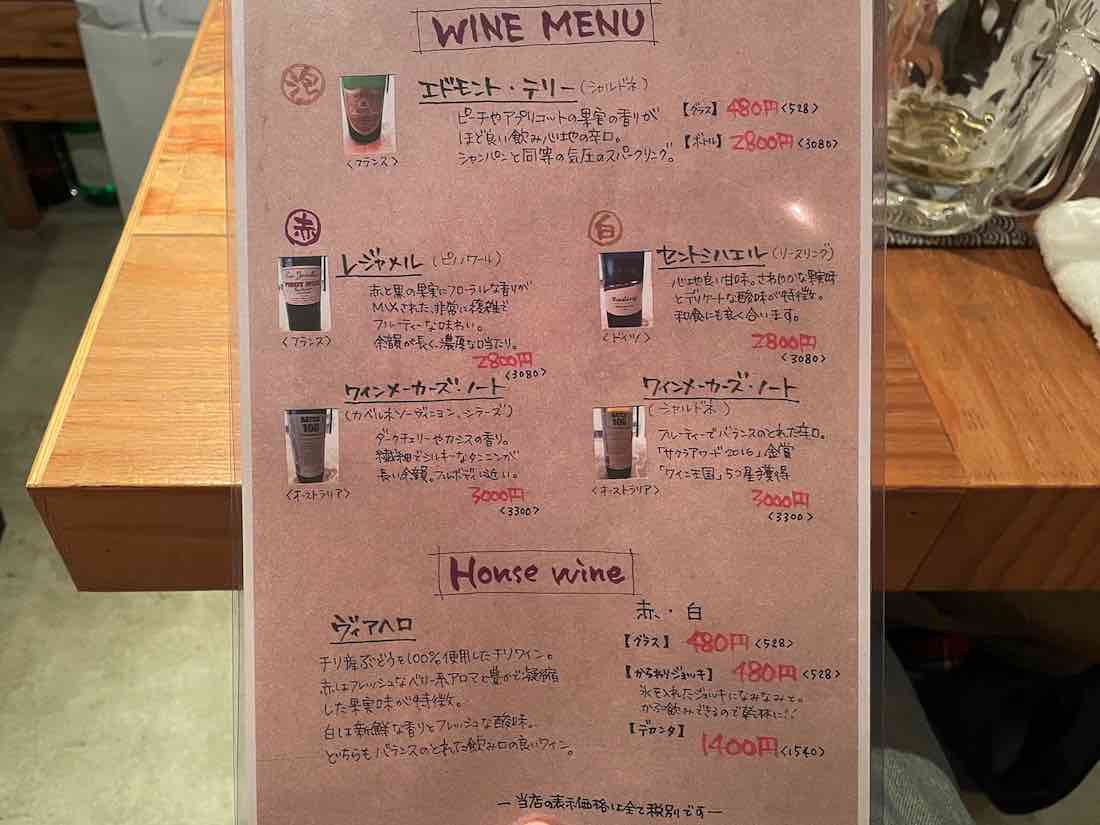 WINE MENU
泡
エドモント・テリー(シャルドネ)
ピーチやアプリコットの果実の香りが
ほど良い飲み心地の辛口。
シャンパンと同等の気圧のスパークリング。
【グラス】480円<528>
【ボトル】2800円<3080>
<フランス>
赤
レジャメル(ピノノワール)
赤と黒の果実にフローラルな香りが
MIXされた、非常に綺麗で
フルーティーな味わい。
余韻が長く、濃厚な口当たり。
2800円
<3080>
<フランス>
白
セントミハエル(リースリング)
心地良い甘味。さわやかな果実味
とデリケートな酸味が特徴。
和食にも良く合います。
2800円
<3080>
<ドイツ>
ワインメーカーズ・ノート
(カベルネソーヴィニヨン、シラーズ)
ダークチェリーやカシスの香り。
繊細でシルキーなタンニンが
長い余韻。フルボディに近い。
3000円
<3300>
<オーストラリア>
ワインメーカーズ・ノート
(シャルドネ)
フルーティーでバランスのとれた辛口。
「サクラアワード2016」金賞
「ワイン王国」5つ星獲得
3000円
<3300>
<オーストラリア>
House wine
ヴィアヘロ
チリ産ぶどうを100%使用したチリワイン。
赤はフレッシュなベリー系アロマと豊かで凝縮
した果実味が特徴。
白は新鮮な香りとフレッシュな酸味。
どちらもバランスのとれた飲み口の良いワイン。
赤・白
【グラス】480円<528>
【かちわりジョッキ】480円<528>
氷を入れたジョッキになみなみと。
かぶ飲みできるので乾杯に!!
【デカンタ】
1400円<1540>
ー当店の表示価格は全て税別ですー